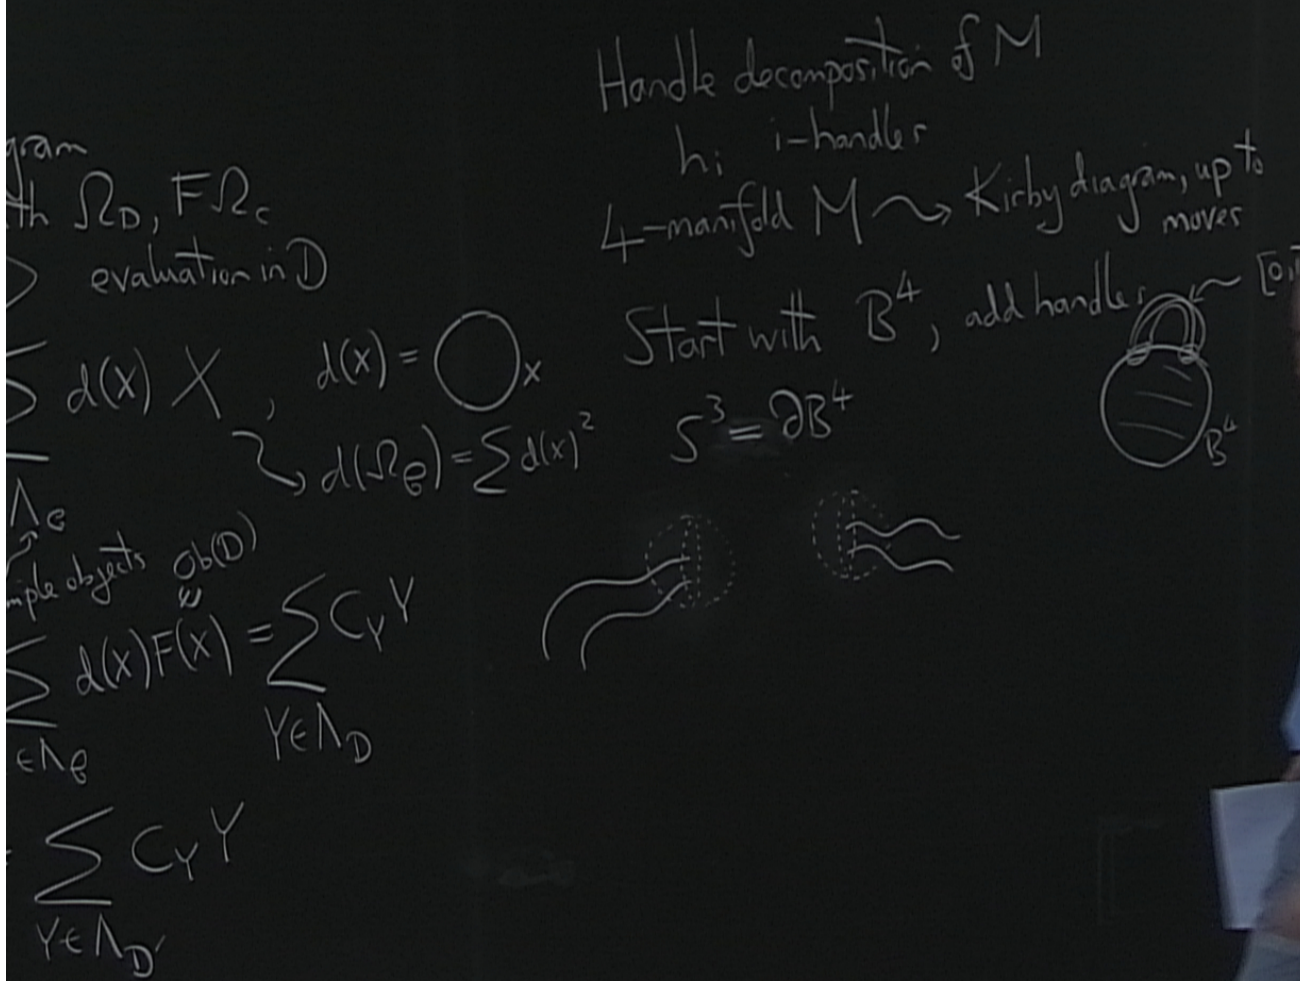 gram
th Ω_D, FΩ_C
evaluation in D
∑ d(X) X , d(X) = ◯_X
d(Ω_C) = ∑ d(X)²
Λ_C
mple objects ob(D)
∑ d(X)F(X) = ∑ C_Y Y
∈Λ_C Y∈Λ_D
= ∑ C_Y Y
Y∈Λ_D'
Handle decomposition of M
h_i i-handles
4-manifold M ⇝ Kirby diagram, up to
moves
Start with B⁴, add handles
[0,1
S³ = ∂B⁴
B⁴